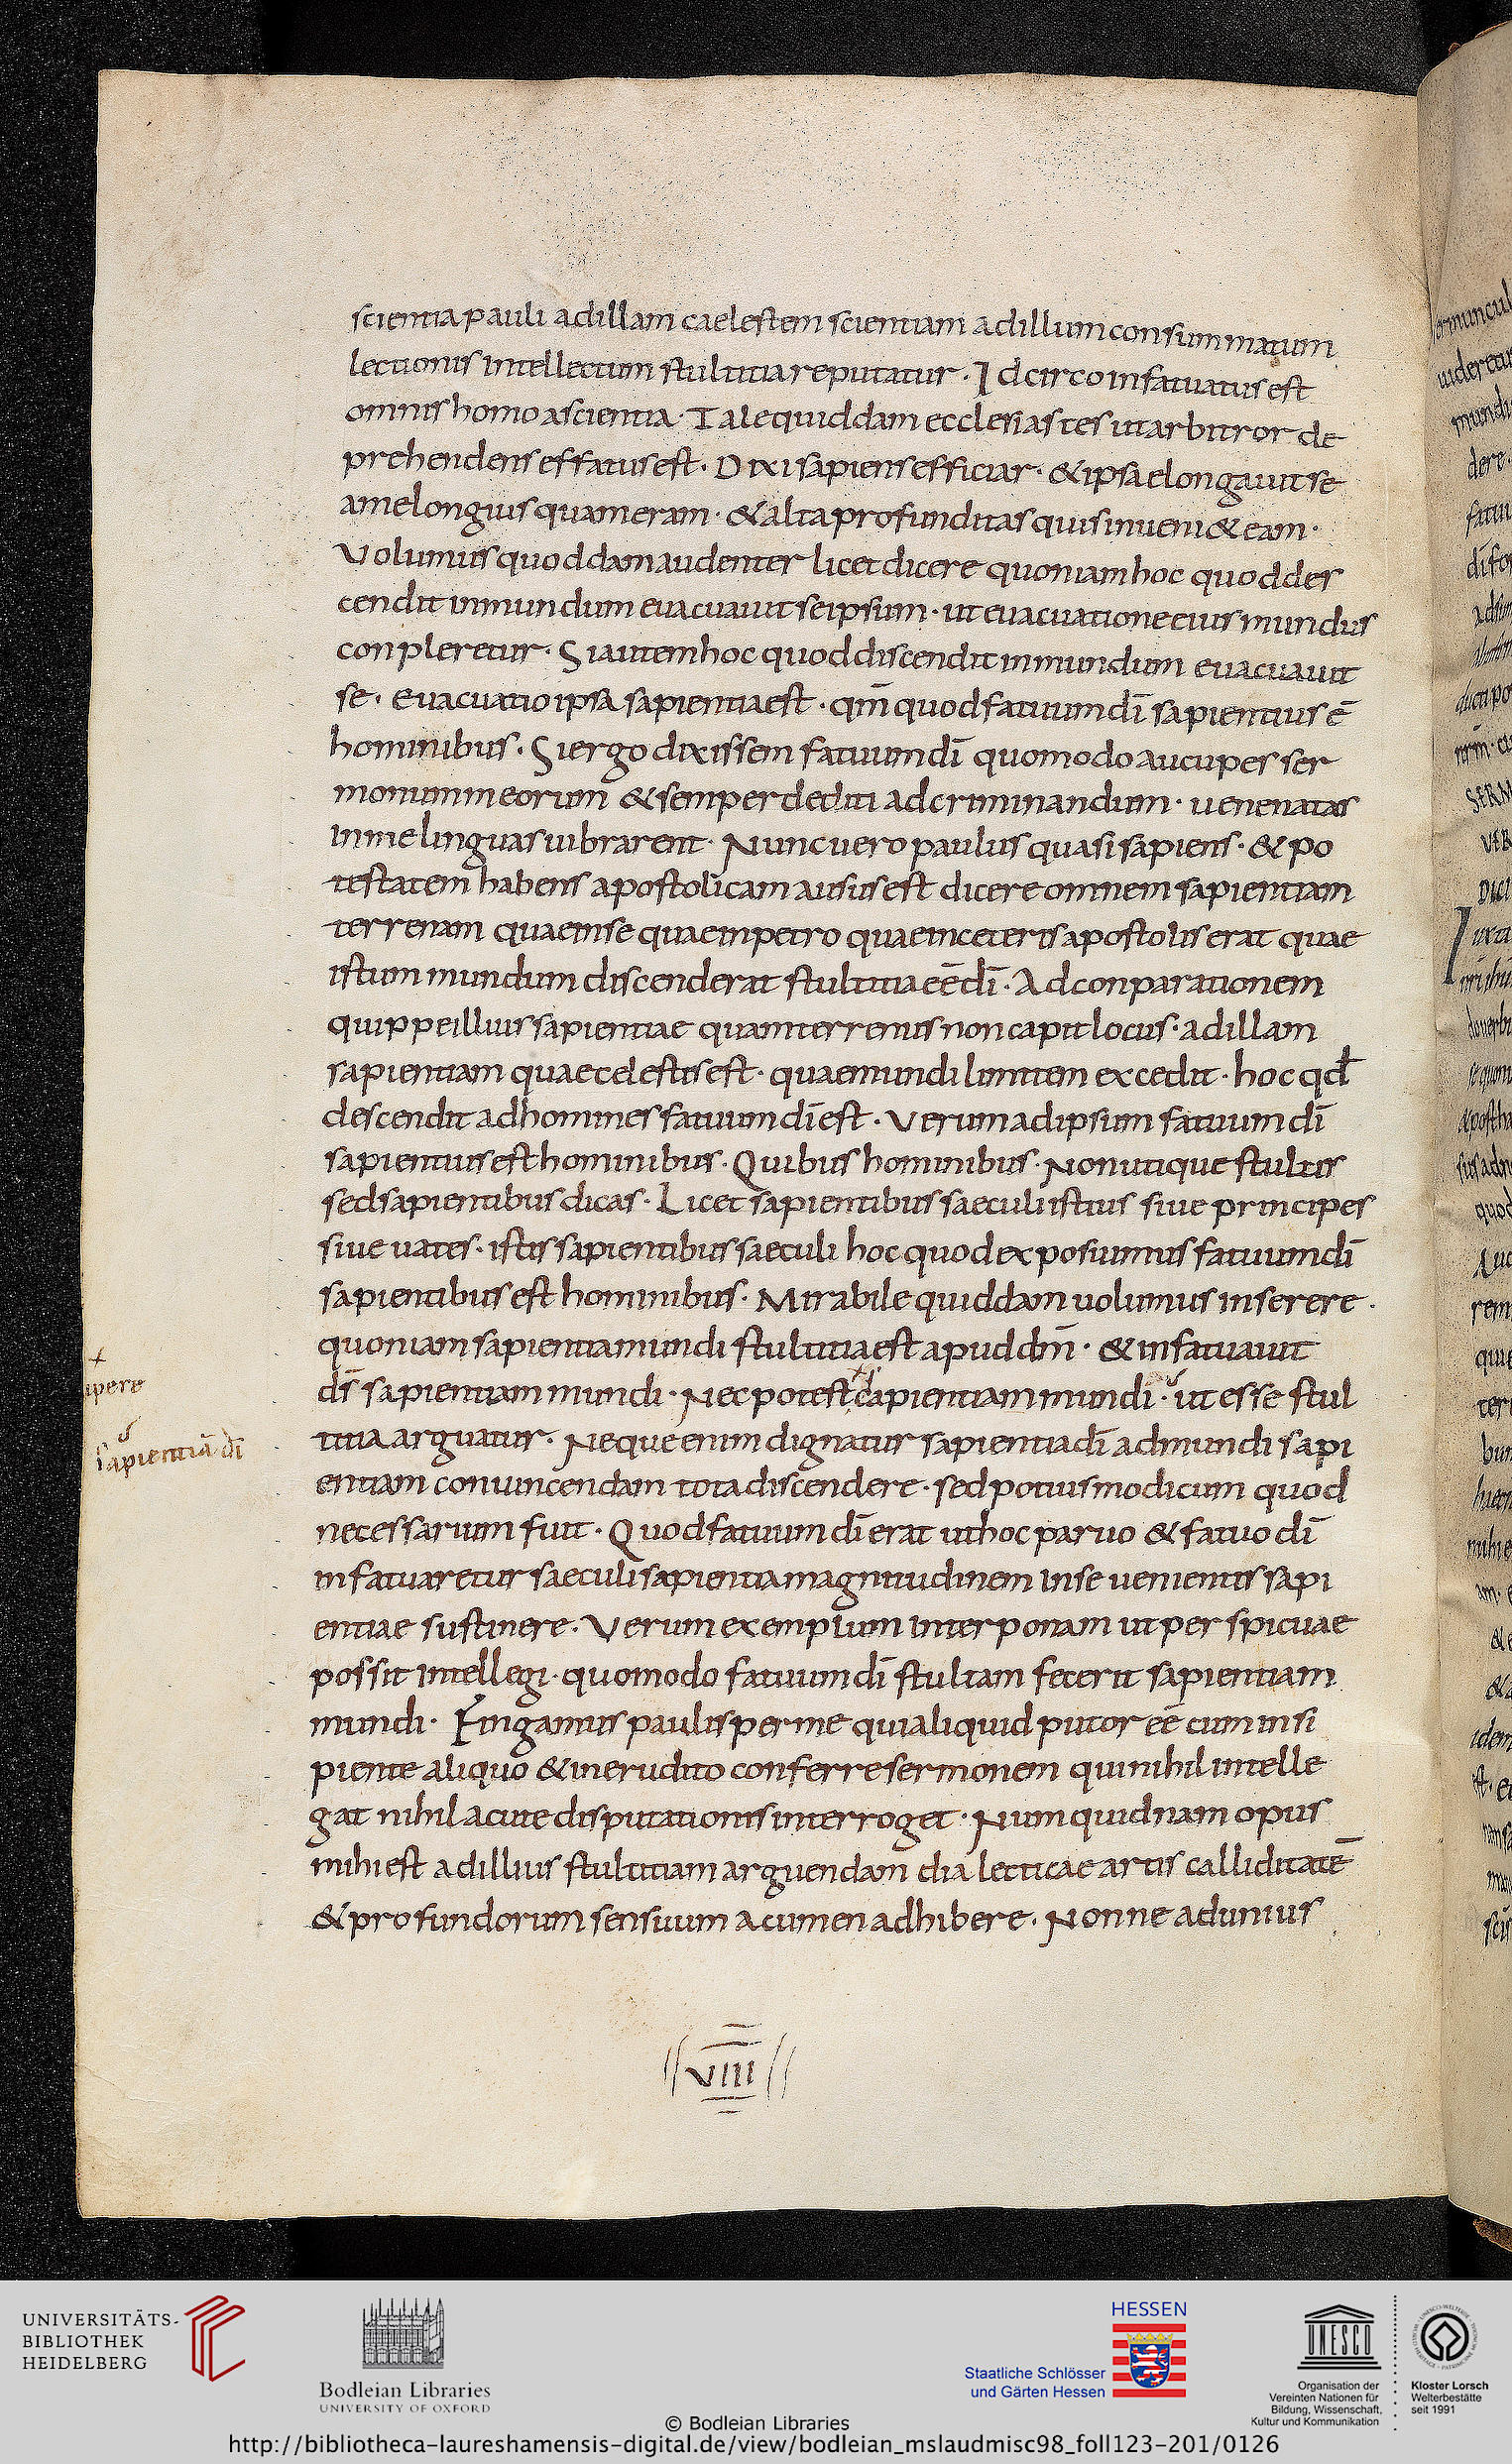 scientia pauli ad illam caelestem scientiam ad illum consummatum
lectionis intellectum stultitia reputatur · Idcirco infatuatus est
omnis homo a scientia · Tale quiddam ecclesiastes ut arbitror de
prehendens effatus est · Dixi sapiens efficiar · & ipsa elongauit se
a me longius quam eram · & alta profunditas quis inueni& eam ·
Volumus quoddam audenter licet dicere quoniam hoc quod des
cendit in mundum euacuauit se ipsum · ut euacuatione eius mundus
conpleretur · Si autem hoc quod discendit in mundum euacuauit
se · euacuatio ipsa sapientia est · qm̄ quod fatuum dī sapientius ē
hominibus · Si ergo dixissem fatuum dī quomodo aucupes ser
monum meorum & semper dediti ad criminandum · uenenatas
in me linguas uibrarent · Nunc uero paulus quasi sapiens · & po
testatem habens apostolicam ausus est dicere omnem sapientiam
terrenam quae in se quae in petro quae in ceteris apostolis erat quae
istum mundum discenderat stultitia eē dī · Ad conparationem
quippe illius sapientiae quam terrenus non capit locus · ad illam
sapientiam quae celestis est · quae mundi limitem excedit · hoc qđ
descendit ad homines fatuum dī est · Verum ad ipsum fatuum dī
sapientius est hominibus · Quibus hominibus · Non utique stultis
sed sapientibus dicas · Licet sapientibus saeculi istius siue principes
siue uates · istis sapientibus saeculi hoc quod exposuimus fatuum dī
sapientibus est hominibus · Mirabile quiddam uolumus inserere ·
quoniam sapientia mundi stultitia est apud dm̄ · & infatuauit
ds̄ sapientiam mundi · Nec potest sapientiam mundi · ut esse stul
ipere
titia arguatur · Neque enim dignatur sapientia dī ad mundi sapi
sapientiā dī
entiam conuincendam tota discendere · sed potius modicum quod
necessarium fuit · Quod fatuum dī erat ut hoc paruo & fatuo dī
infatuaretur saeculi sapientia magnitudinem in se uenientis sapi
entiae sustinere · Verum exemplum interponam ut perspicuae
possit intellegi · quomodo fatuum dī stultam fecerit sapientiam
mundi · Fingamus paulisper me qui aliquid putor eē cum insi
piente aliquo & inerudito conferre sermonem qui nihil intelle
gat nihil acute disputationis interroget · Numquidnam opus
mihi est ad illius stultitiam arguendam dialecticae artis calliditatē
& profundorum sensuum acumen adhibere · Nonne ad unius
VIII
UNIVERSITÄTS-
BIBLIOTHEK
HEIDELBERG
Bodleian Libraries
UNIVERSITY OF OXFORD
HESSEN
Staatliche Schlösser
und Gärten Hessen
UNESCO
Organisation der
Vereinten Nationen für
Bildung, Wissenschaft,
Kultur und Kommunikation
Kloster Lorsch
Welterbestätte
seit 1991
© Bodleian Libraries
http://bibliotheca-laureshamensis-digital.de/view/bodleian_mslaudmisc98_foll123-201/0126